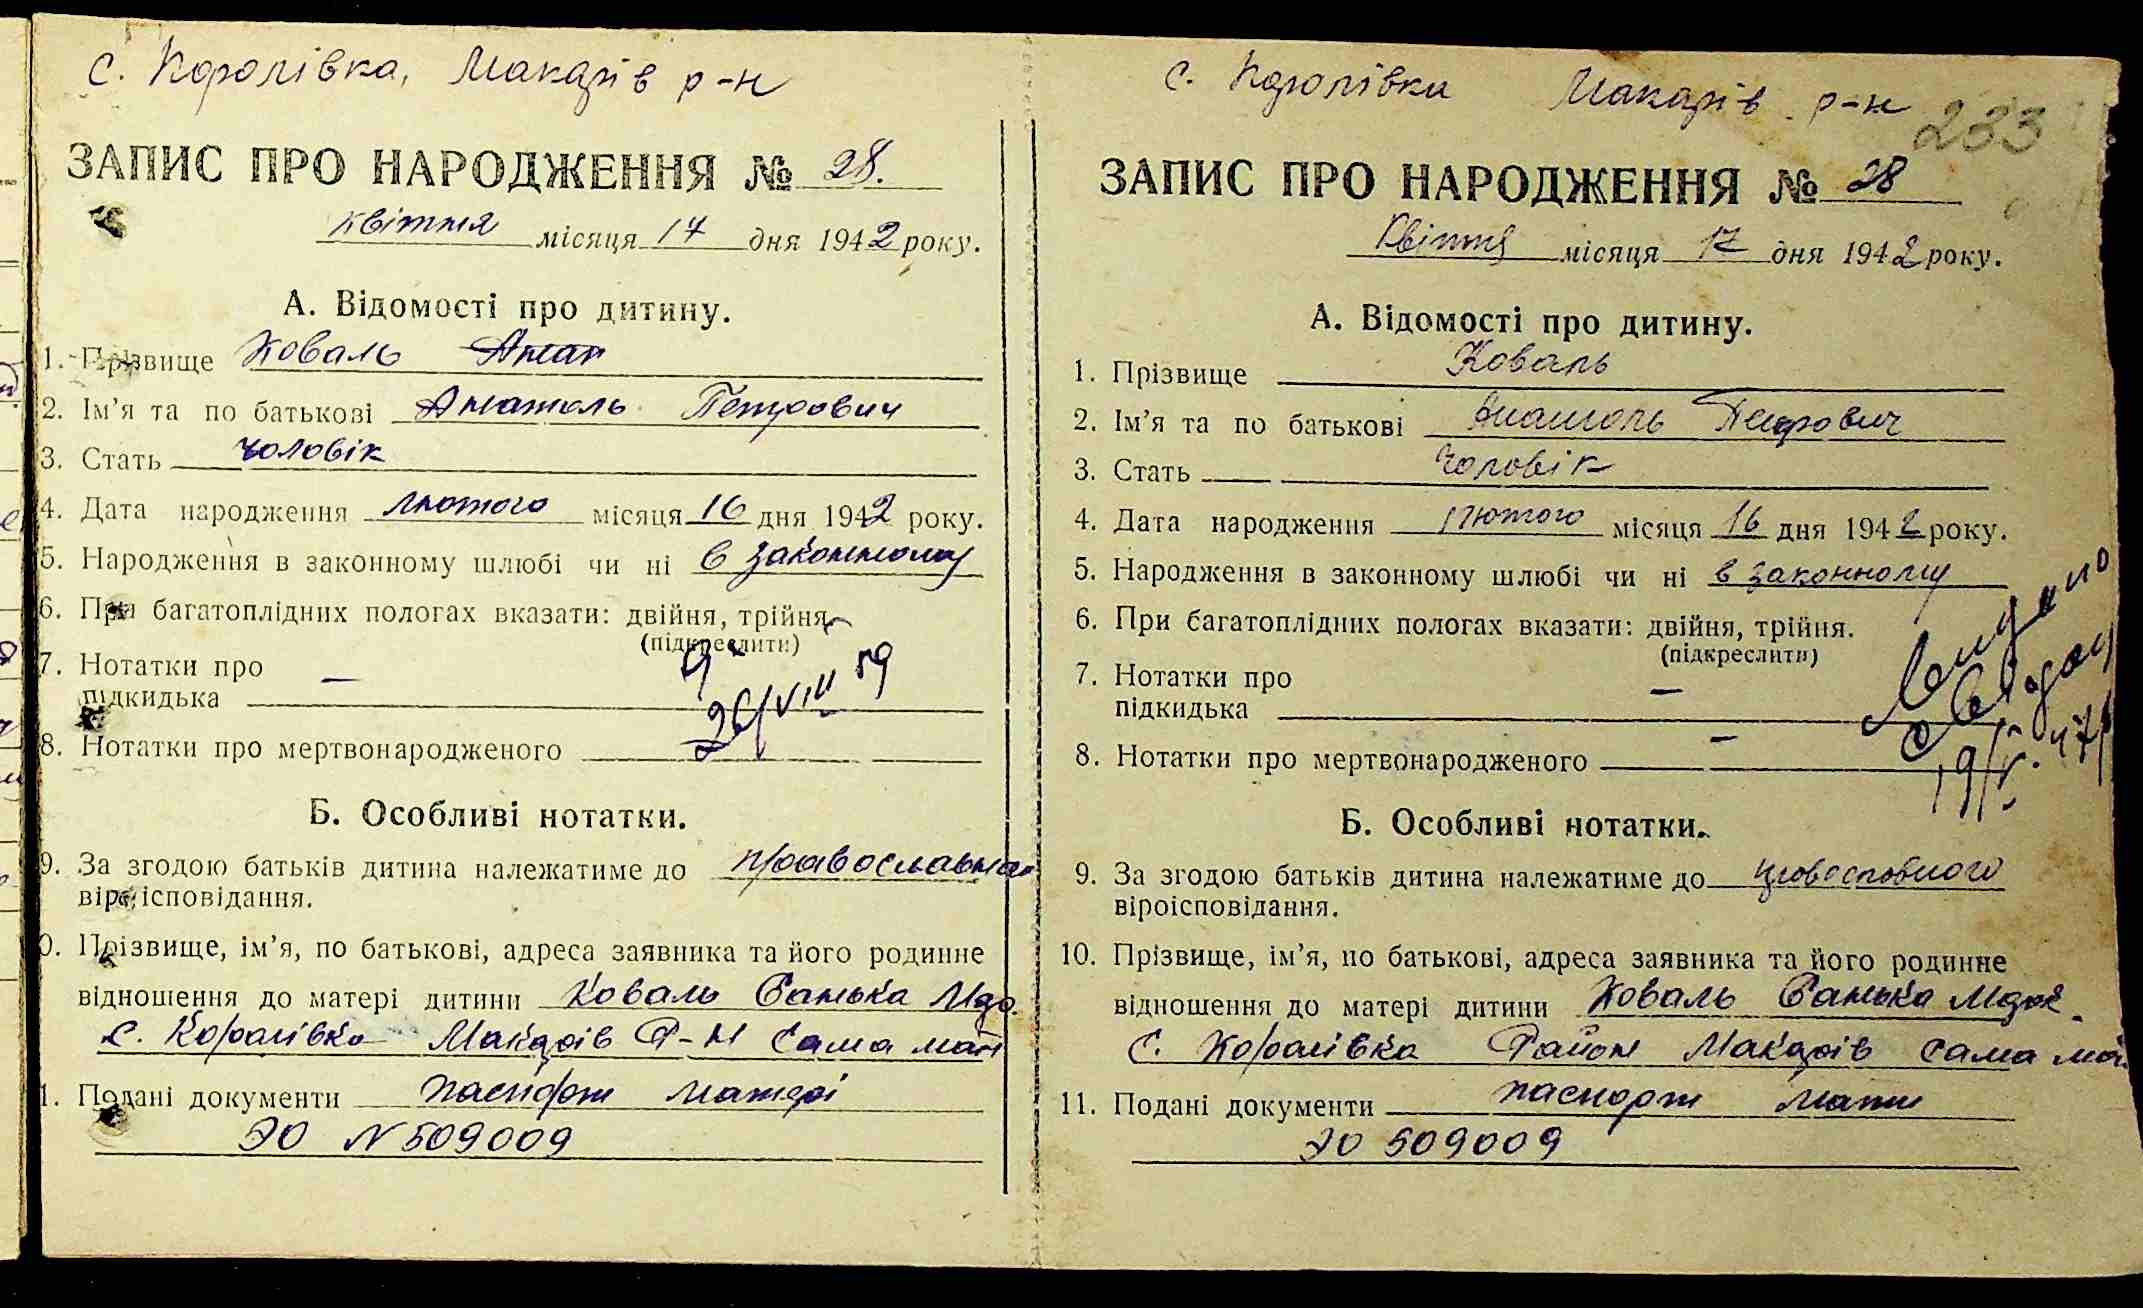 с. Королівка, Макарів р-н
ЗАПИС ПРО НАРОДЖЕННЯ № 28.
квітня місяця 17 дня 1942 року.
А. Відомості про дитину.
1. Прізвище Коваль Анат
2. Ім'я та по батькові Анатоль Петрович
3. Стать чоловік
4. Дата народження лютого місяця 16 дня 1942 року.
5. Народження в законному шлюбі чи ні в законному
6. При багатоплідних пологах вказати: двійня, трійня.
(підкреслити)
7. Нотатки про
підкидька —
26/VIII 59
8. Нотатки про мертвонародженого
Б. Особливі нотатки.
9. За згодою батьків дитина належатиме до
віроісповідання.
0. Прізвище, ім'я, по батькові, адреса заявника та його родинне
відношення до матері дитини Коваль Ганька
с. Королівка Макарів Р-н сама мати
1. Подані документи паспорт матері
ЭО N 509009
с. Королівка Макарів р-н
233
ЗАПИС ПРО НАРОДЖЕННЯ № 28
Квітня місяця 17 дня 1942 року.
А. Відомості про дитину.
1. Прізвище Коваль
2. Ім'я та по батькові Анатоль Петрович
3. Стать Чоловік
4. Дата народження лютого місяця 16 дня 1942 року.
5. Народження в законному шлюбі чи ні в законному
6. При багатоплідних пологах вказати: двійня, трійня.
(підкреслити)
7. Нотатки про
підкидька —
8. Нотатки про мертвонародженого —
19/V. 47
Б. Особливі нотатки.
9. За згодою батьків дитина належатиме до православного
віроісповідання.
10. Прізвище, ім'я, по батькові, адреса заявника та його родинне
відношення до матері дитини Коваль Ганька
с. Королівка Район Макарів сама
11. Подані документи паспорт мати
ЭО 509009